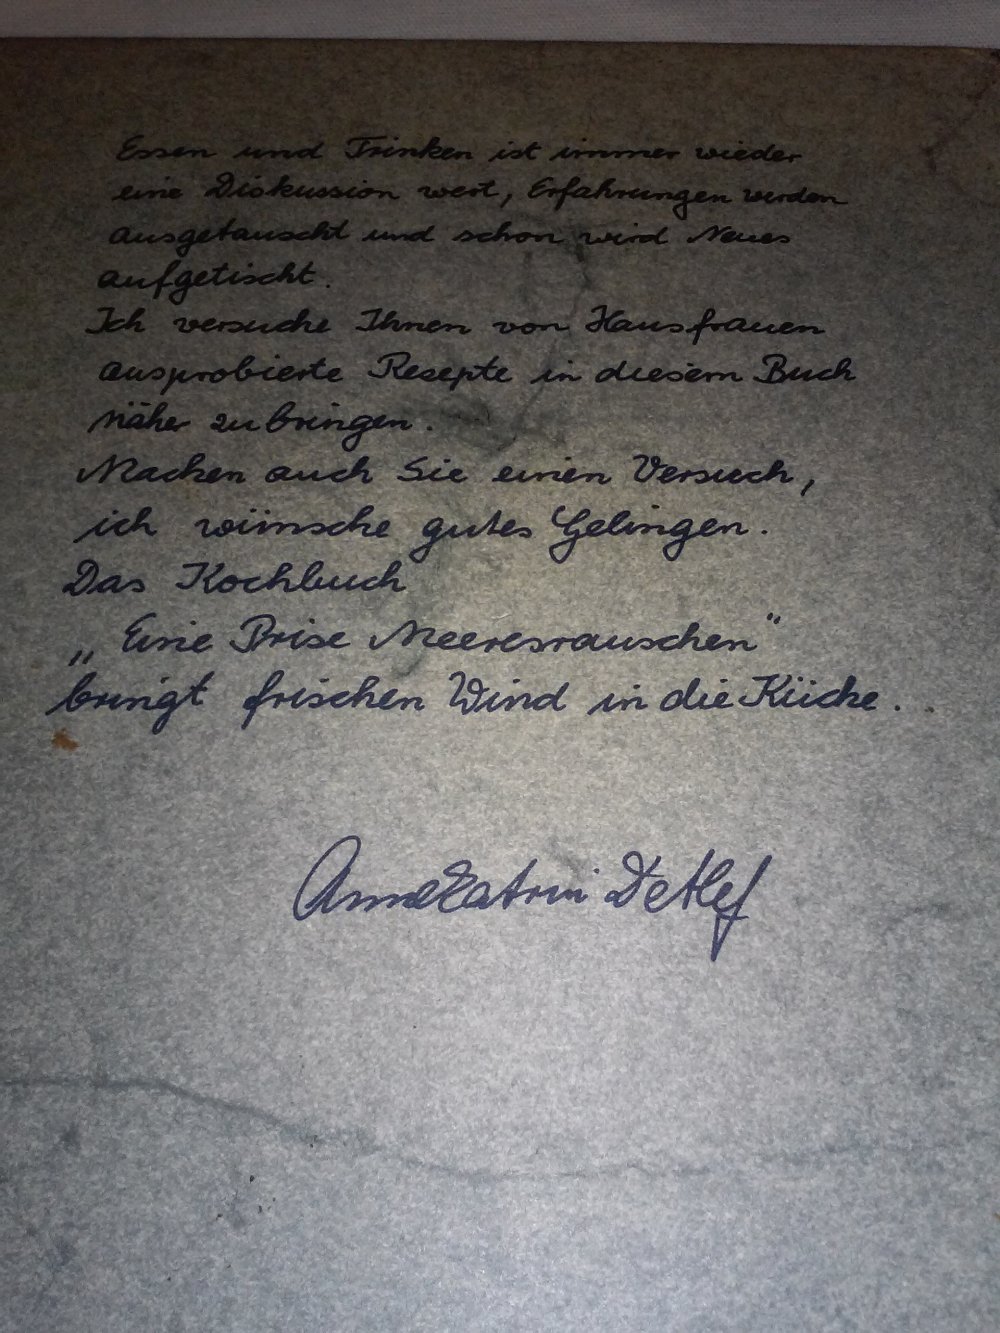 Essen und Trinken ist immer wieder
eine Diskussion wert, Erfahrungen werden
ausgetauscht und schon wird Neues
aufgetischt.
Ich versuche Ihnen von Hausfrauen
ausprobierte Resepte in diesem Buch
näher zu bringen.
Machen auch Sie einen Versuch,
ich wünsche gutes Gelingen.
Das Kochbuch
„Eine Prise Meeresrauschen"
bringt frischen Wind in die Küche.
Annekatrin Detlef